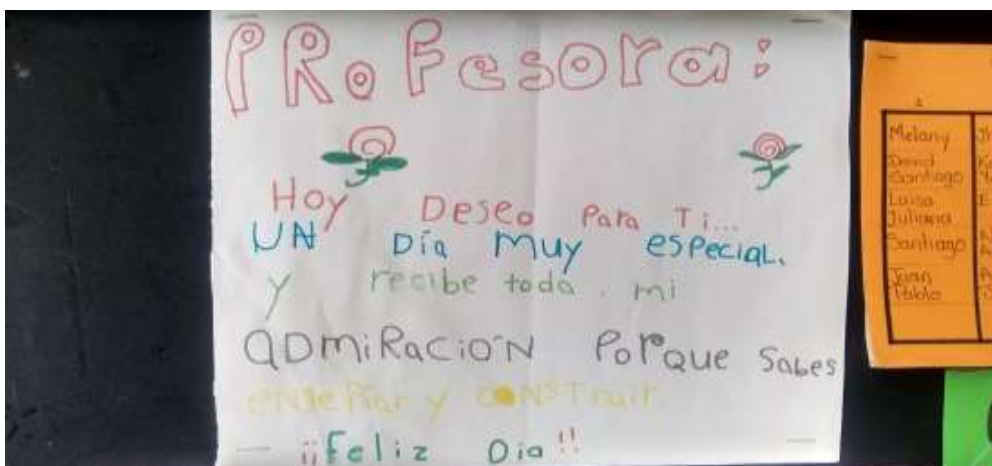 PRoFesora:
Hoy Deseo Para Ti...
UN Día Muy especial.
Y recibe toda. mi
aDmiRacióN Porque Sabes
enseñar y coNSTruir.
¡¡Feliz Dia!!
1
Melany
David
Santiago
Luisa
Juliana
Santiago
Juan
Pablo